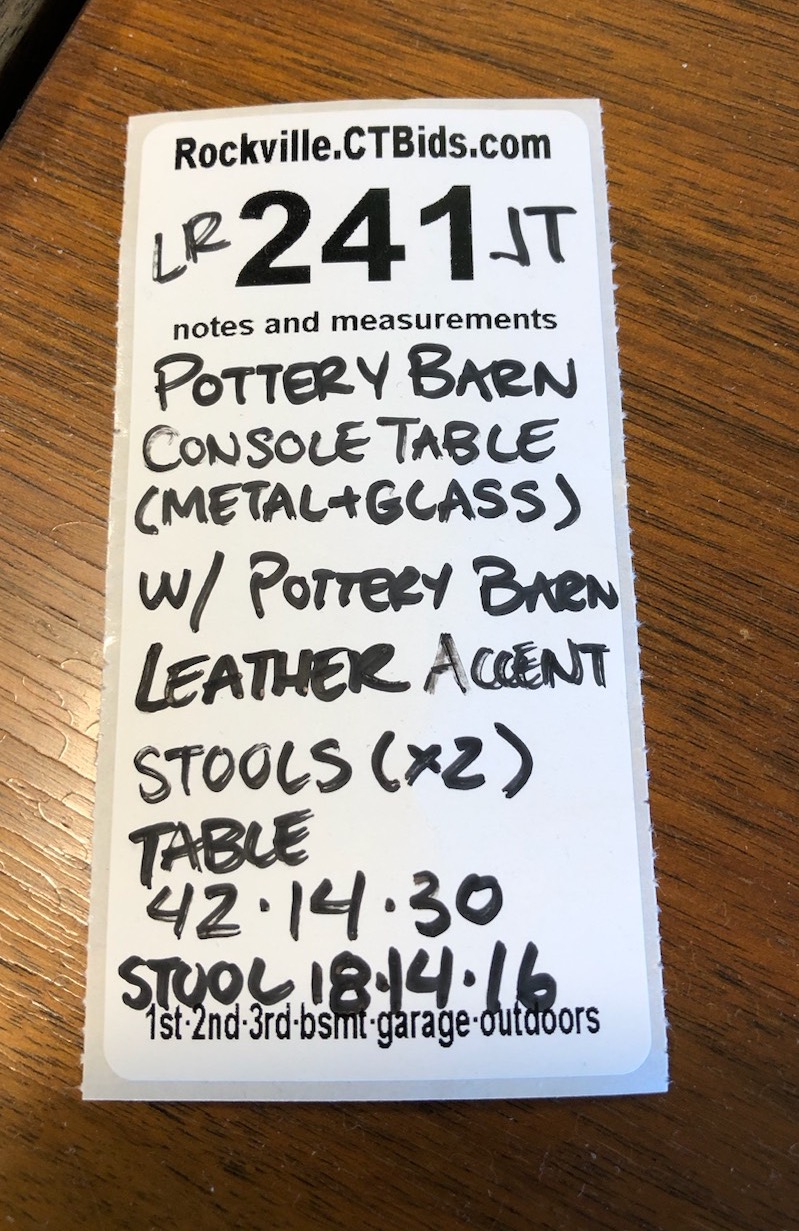 Rockville.CTBids.com
LR 241 JT
notes and measurements
POTTERY BARN
CONSOLE TABLE
(METAL+GLASS)
W/ POTTERY BARN
LEATHER ACCENT
STOOLS (x2)
TABLE
42·14·30
STOOL 18·14·16
1st·2nd·3rd·bsmt·garage·outdoors